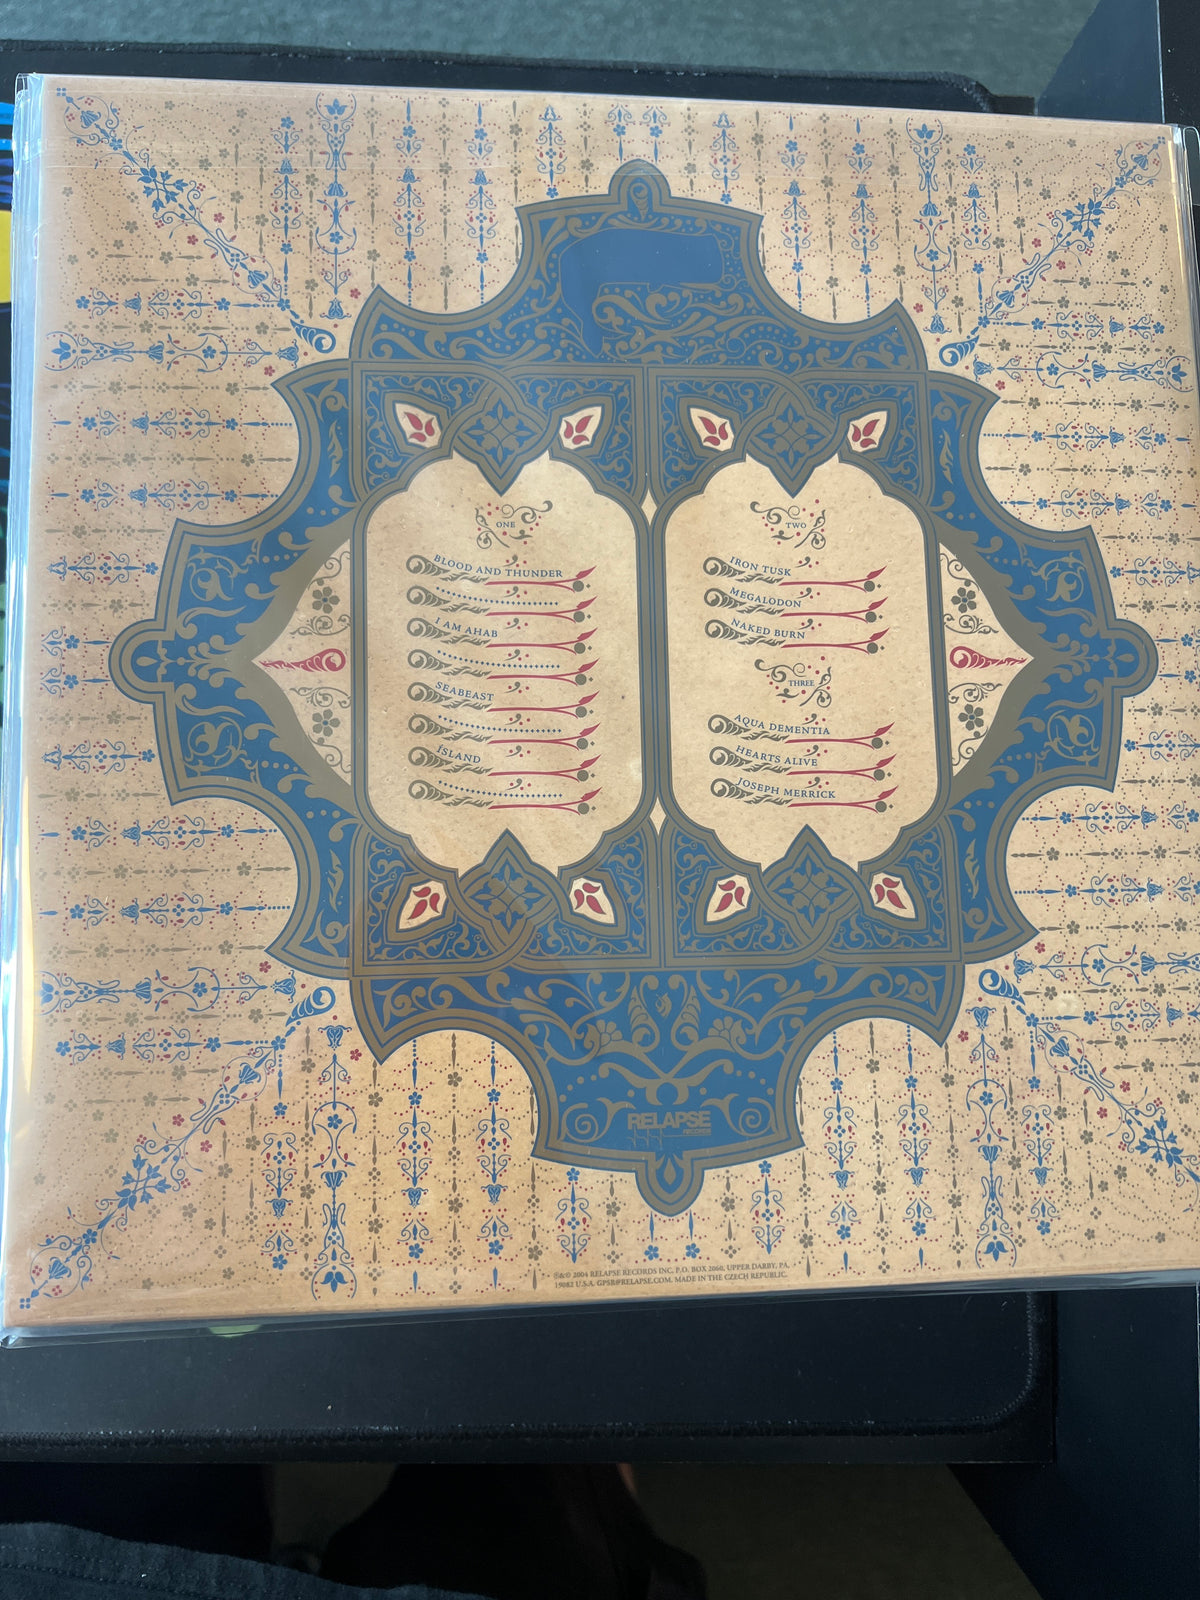 ONE
BLOOD AND THUNDER
I AM AHAB
SEABEAST
ISLAND
TWO
IRON TUSK
MEGALODON
NAKED BURN
THREE
AQUA DEMENTIA
HEARTS ALIVE
JOSEPH MERRICK
RELAPSE
RECORDS
℗&© 2004 RELAPSE RECORDS INC, P.O. BOX 2060, UPPER DARBY, PA,
19082 U.S.A. GPSR@RELAPSE.COM. MADE IN THE CZECH REPUBLIC.